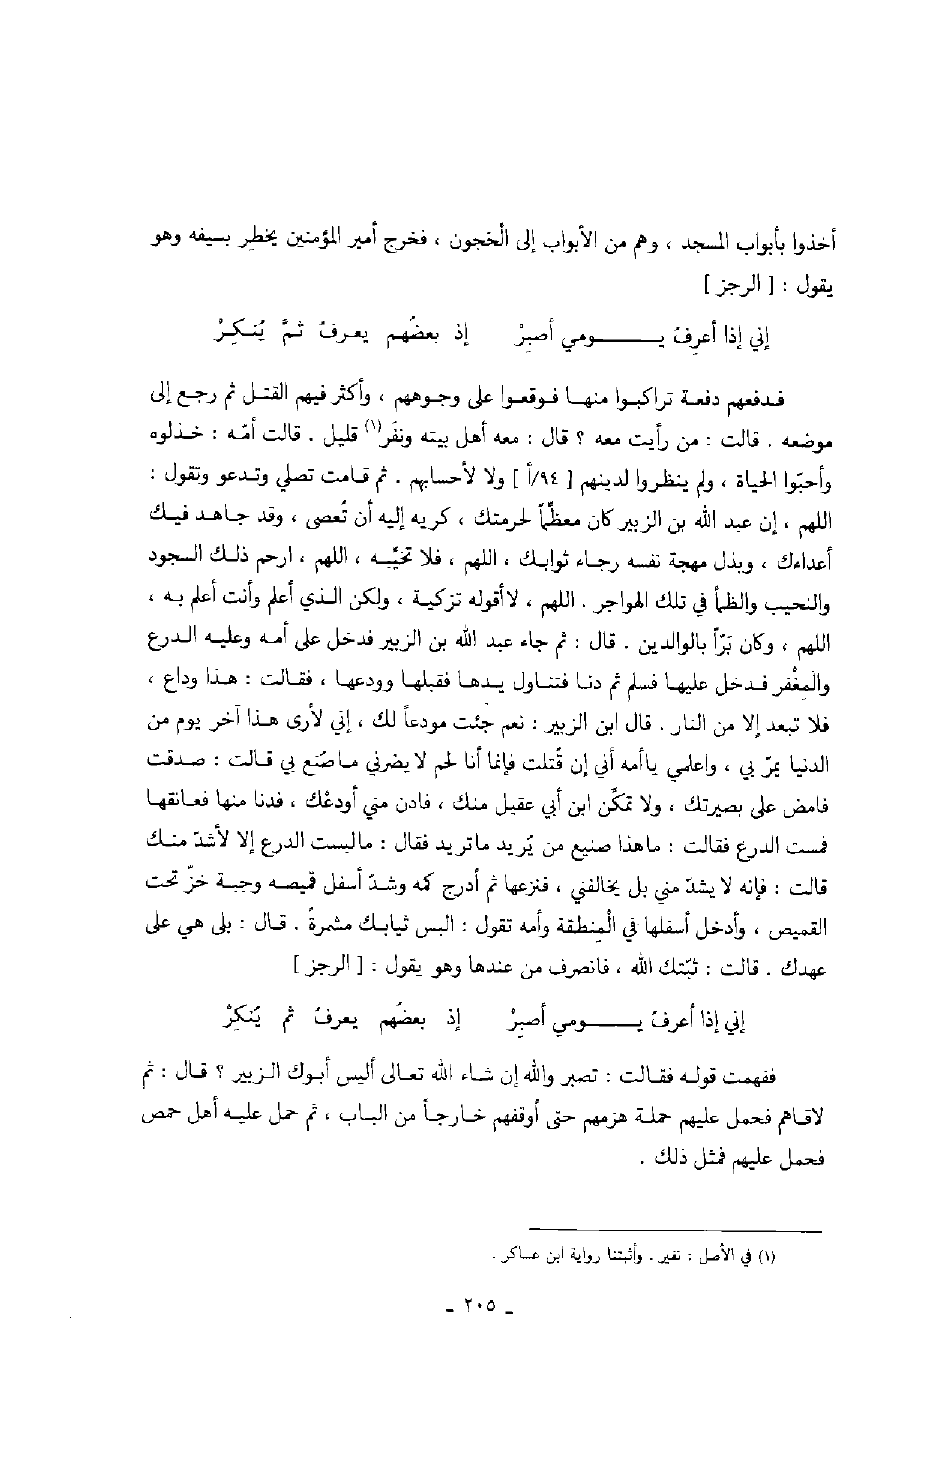 أخذوا بأبواب المسجد ، وهم من الأبواب إلى الْحَجون ، فخرج أمير المؤمنين يخطِر بسيفه وهو
يقول : [ الرجز ]
إني إذا أعرِفُ يــومي أصبِرْ إذ بعضُهم يعرفُ ثمَّ يُنكِرْ
فدفعهم دفعة تراكبوا منها فوقعوا على وجوههم ، وأكثر فيهم القتل ثم رجع إلى
موضعه . قالت : من رأيت معه ؟ قال : معه أهل بيته ونَفَر(١) قليل . قالت أمّه : خذلوه
وأحبّوا الحياة ، ولم ينظروا لدينهم [ ٩٤/أ ] ولا لأحسابهم . ثم قامت تصلي وتدعو وتقول :
اللهم ، إن عبد الله بن الزبير كان معظّماً لحرمتك ، كريه إليه أن تُعصى ، وقد جاهد فيك
أعداءك ، وبذل مهجة نفسه رجاء ثوابك ، اللهم ، فلا تخيّبه ، اللهم ، ارحم ذلك السجود
والنحيب والظمأ في تلك الهواجر . اللهم ، لاأقوله تزكية ، ولكن الذي أعلم وأنت أعلم به ،
اللهم ، وكان بَرّاً بالوالدين . قال : ثم جاء عبد الله بن الزبير فدخل على أمه وعليه الدرع
والمِغْفر فدخل عليها فسلم ثم دنا فتناول يدها فقبلها وودعها ، فقالت : هذا وداع ،
فلا تبعد إلا من النار . قال ابن الزبير : نعم جئت مودعاً لك ، إني لأرى هذا آخر يوم من
الدنيا يمرّ بي ، واعلمي ياأمه أني إن قُتلت فإنما أنا لحم لا يضرني ماصُنع بي قالت : صدقت
فامض على بصيرتك ، ولا تمكّن ابن أبي عقيل منك ، فادن مني أودعْك ، فدنا منها فعانقها
فمست الدرع فقالت : ماهذا صنيع من يُريد ماتريد فقال : مالبست الدرع إلا لأشدّ منك
قالت : فإنه لا يشدّ مني بل يخالفني ، فنزعها ثم أدرج كمه وشدّ أسفل قميصه وجبة خزّ تحت
القميص ، وأدخل أسفلها في الْمِنطقة وأمه تقول : البس ثيابك مشمرةً . قال : بلى هي على
عهدك . قالت : ثبّتك الله ، فانصرف من عندها وهو يقول : [ الرجز ]
إني إذا أعرفُ يــومي أصبِرْ إذ بعضُهم يعرفُ ثم يُنْكِرُ
ففهمت قوله فقالت : تصبر والله إن شاء الله تعالى أليس أبوك الزبير ؟ قال : ثم
لاقاهم فحمل عليهم حملة هزمهم حتى أوقفهم خارجاً من الباب ، ثم حمل عليه أهل حمص
فحمل عليهم فمثل ذلك .
(١) في الأصل : نفير . وأثبتنا رواية ابن عساكر .
ـ ٢٠٥ ـ